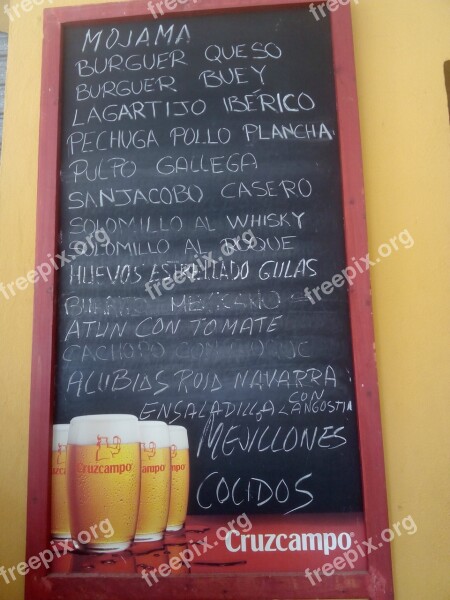 MOJAMA
BURGUER QUESO
BURGUER BUEY
LAGARTIJO IBÉRICO
PECHUGA POLLO PLANCHA
PULPO GALLEGA
SANJACOBO CASERO
SOLOMILLO AL WHISKY
SOLOMILLO AL ROQUE
HUEVOS ESTRELLADO GULAS
MEXICANO
ATUN CON TOMATE
CACHOPO CON
ALUBIAS ROJA NAVARRA
CON
ENSALADILLA LANGOSTIN
MEJILLONES
COCIDOS
Cruzcampo
Cruzcampo
Cruzcampo
freepix.org
freepix.org
freepix.org
freepix.org
freepix.org
freepix.org
freepix.org
freepix.org